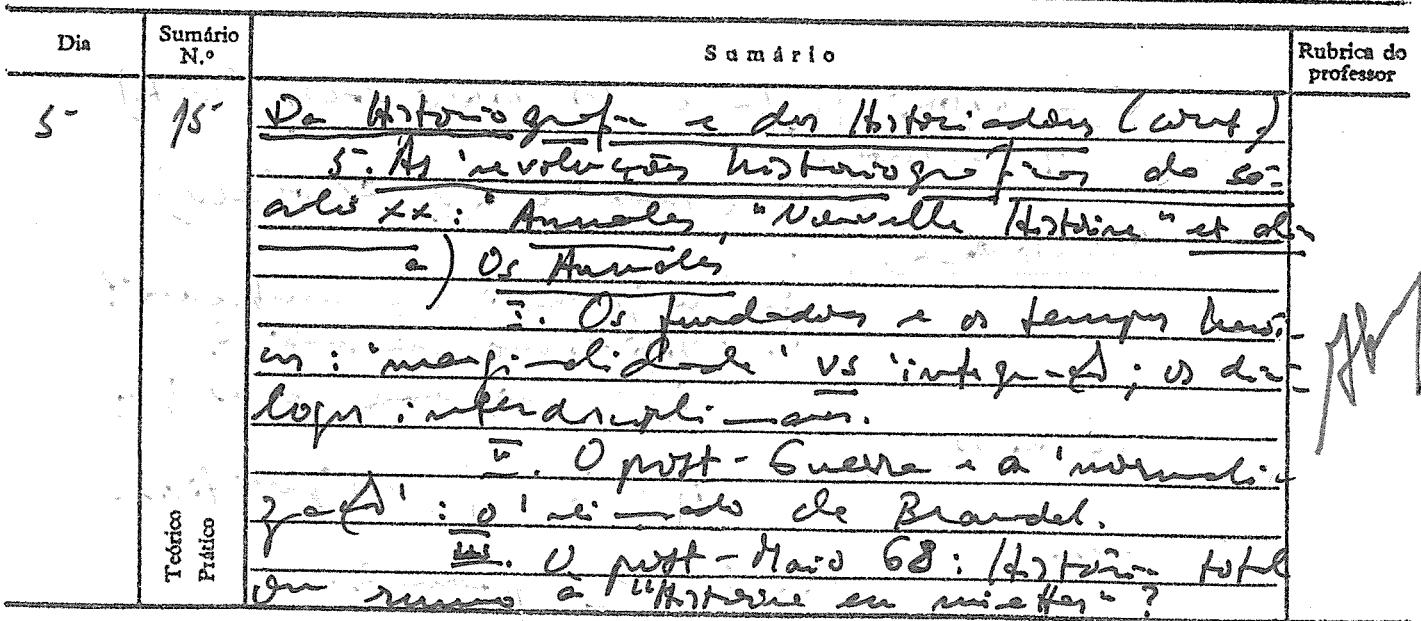 Dia Sumário N.º Sumário Rubrica do professor
5 15 Da Historiografia e dos Historiadores (cont.)
5. As 'revoluções historiográficas do sé-
culo XX: "Annales, "Nouvelle Histoire" et alia
a) Os Annales
I. Os fundadores e os tempos herói-
cos: 'marginalidade' vs 'integração; os diá-
logos interdisciplinares.
II. O post-Guerra e a 'normali-
zação': o 'reinado de Braudel.
III. O post-Maio 68: História total
ou rumo à "Histoire en miettes"?
Teórico
Prático